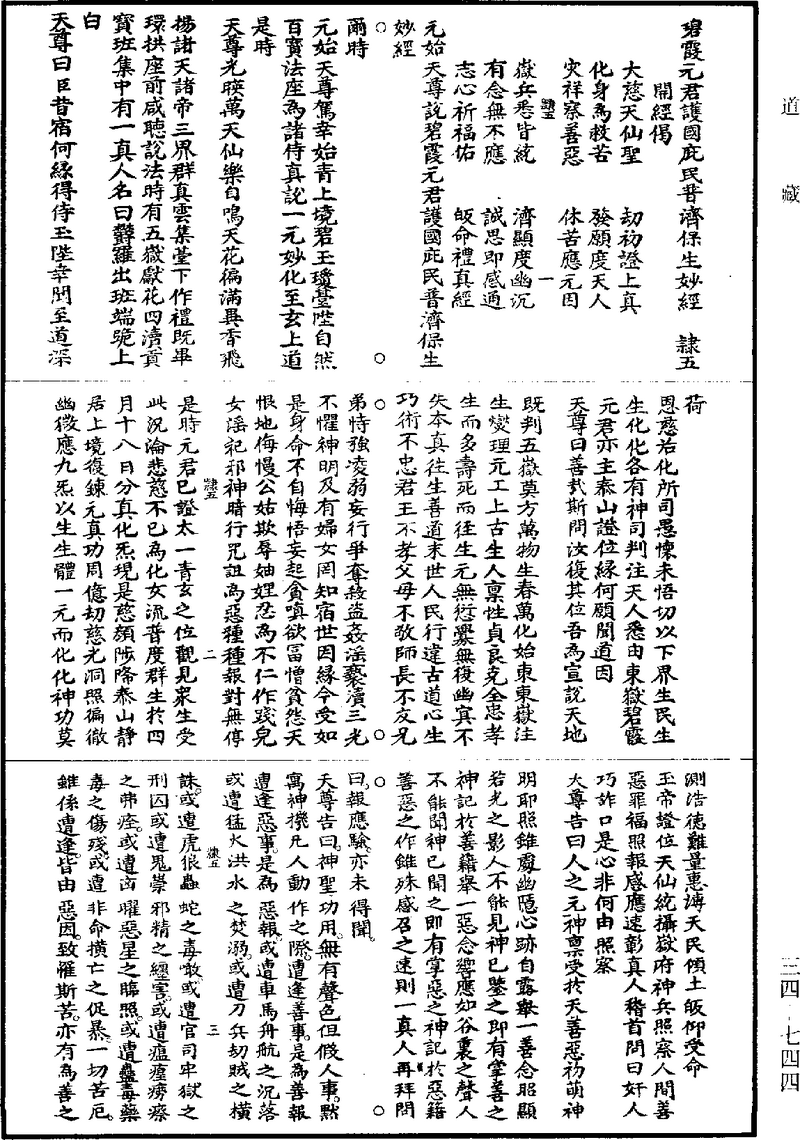 道藏
三四·七四四
碧霞元君護國庇民普濟保生妙經　隸五
開經偈
大慈天仙聖　刧初證上真
化身為救苦　發願度天人
灾祥察善惡　休苦應元因
隸五　一
嶽兵悉皆統　濟顯度幽沉
有念無不應　誠思即感通
志心祈福佑　皈命禮真經
元始天尊說碧霞元君護國庇民普濟保生
妙經
爾時
元始天尊駕幸始青上境碧玉瓊臺陛自然
百寶法座為諸侍真說一元妙化至玄上道
是時
天尊光暎萬天仙樂自鳴天花徧滿異香飛
揚諸天諸帝三界群真雲集臺下作禮既畢
環拱座前咸聽說法時有五嶽獻花四瀆貢
寳班集中有一真人名曰欝羅出班端跪上
白
天尊曰臣昔宿何緣得侍玉陛幸聞至道深
荷
恩慈若化所司愚懷未悟切以下界生民生
生化化各有神司判注天人悉由東嶽碧霞
元君亦主泰山證位緣何願聞道因
天尊曰善哉斯問汝復其位吾為宣說天地
既判五嶽莫方萬物生春萬化始東東嶽注
生燮理元工上古生人禀性貞良克全忠孝
生而多壽死而徑生元無愆釁無後幽冥不
失本真往生善道末世人民行違古道心生
巧術不忠君王不孝父母不敬師長不友兄
弟恃強凌弱妄行爭奪殺盜姦滛褻瀆三光
不懼神明及有婦女罔知宿世因緣令受如
是身命不自悔悟妄起貪嗔欲冨憎貧怨天
恨地侮慢公姑欺辱妯娌忍為不仁作踐兒
女滛祀邪神暗行咒詛為惡種種報對無停
隸五　二
是時元君已證太一青玄之位觀見衆生受
此沉淪悲慈不已為化女流普度群生於四
月十八日分真化炁現是慈顔陟降泰山靜
居上境復鍊元真功周億劫慈光洞照徧徹
幽微應九炁以生生體一元而化化神功莫
測浩德難量惠溥天民傾土皈仰受命
玉帝證位天仙統攝嶽府神兵照察人間善
惡罪福照報感應速彰真人稽首問曰奸人
巧詐口是心非何由照察
天尊告曰人之元神禀受於天善惡初萌神
明耶照雖處幽隱心跡自露舉一善念昭顯
若光之影人不能見神已鑒之即有掌善之
神記於善籍舉一惡念響應如谷裏之聲人
不能聞神已聞之即有掌惡之神記於惡籍
善惡之作雖殊感召之速則一真人再拜問
曰報應驗亦未得聞
天尊告曰神聖功用無有聲色但假人事默
寓神機凡人動作之際遭逢善事是為善報
遭逢惡事是為惡報或遭車馬舟航之沉落
或遭猛火洪水之焚溺或遭刀兵劫賊之橫
隸五　三
誅或遭虎狼蟲蛇之毒噉或遭官司牢獄之
刑囚或遭鬼祟邪精之纒害或遭瘟瘽癆瘵
之弗痊或遭凶曜惡星之臨照或遭蠱毒藥
毒之傷殘或遭非命橫亡之促暴一切苦厄
雖係遭逢皆由惡因致罹斯苦亦有為善之